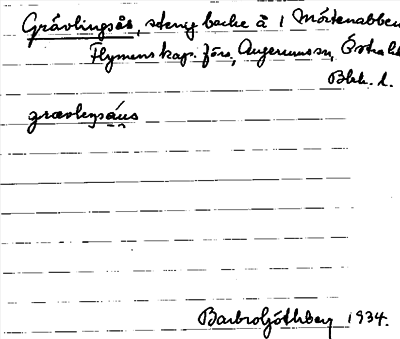 Grävlingsås, stenig backe å 1 Mörtenabben
Flymens kap. förs., Augerums sn, Östra hd
Blek. l.
grævlɩŋsåus
Barbro Göthberg 1934.